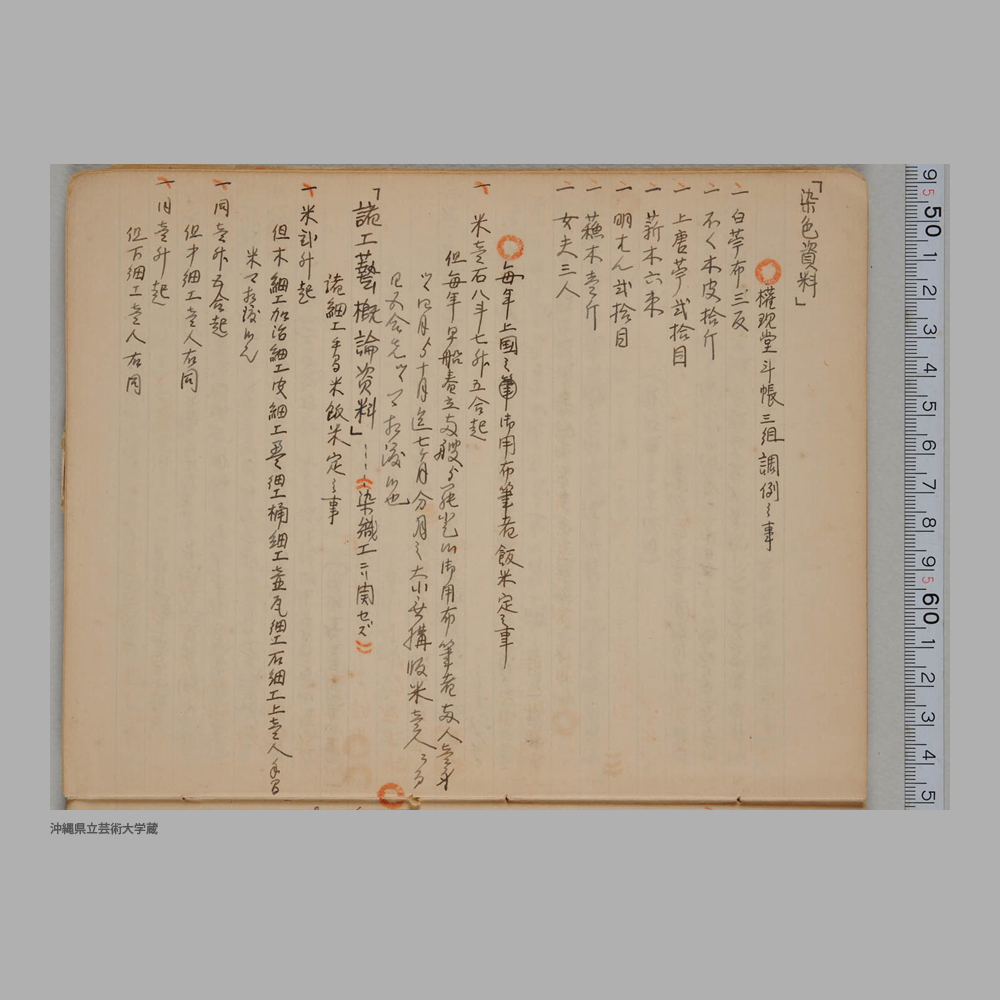 「染色資料」
権現堂斗帳三組調例之事
一 白苧布三反
一 ふく木皮拾斤
一 上唐苧弐拾目
一 薪木六束
一 明はん弐拾目
一 蘓木壱斤
一 女夫三人
毎年上国之御用布筆者飯米定之事
一 米壱石八斗七舛五合起
但毎年早船壱立両艘 御用布筆者両人
四月 十月迄七ケ月分月之大小無構飯米壱人
相渡候也
「諸工藝概論資料」……《染織工ニ関セズ》
諸細工 米飯米定之事
一 米弐升起
但木細工加治細工皮細工 細工桶細工 瓦細工石細工上壱人
米 相渡候
一 同壱舛五合起
但中細工壱人右同
一 同壱升起
但下細工壱人右同
9 5 50 1 2 3 4 5 6 7 8 9 5 60 1 2 3 4 5
沖縄県立芸術大学蔵